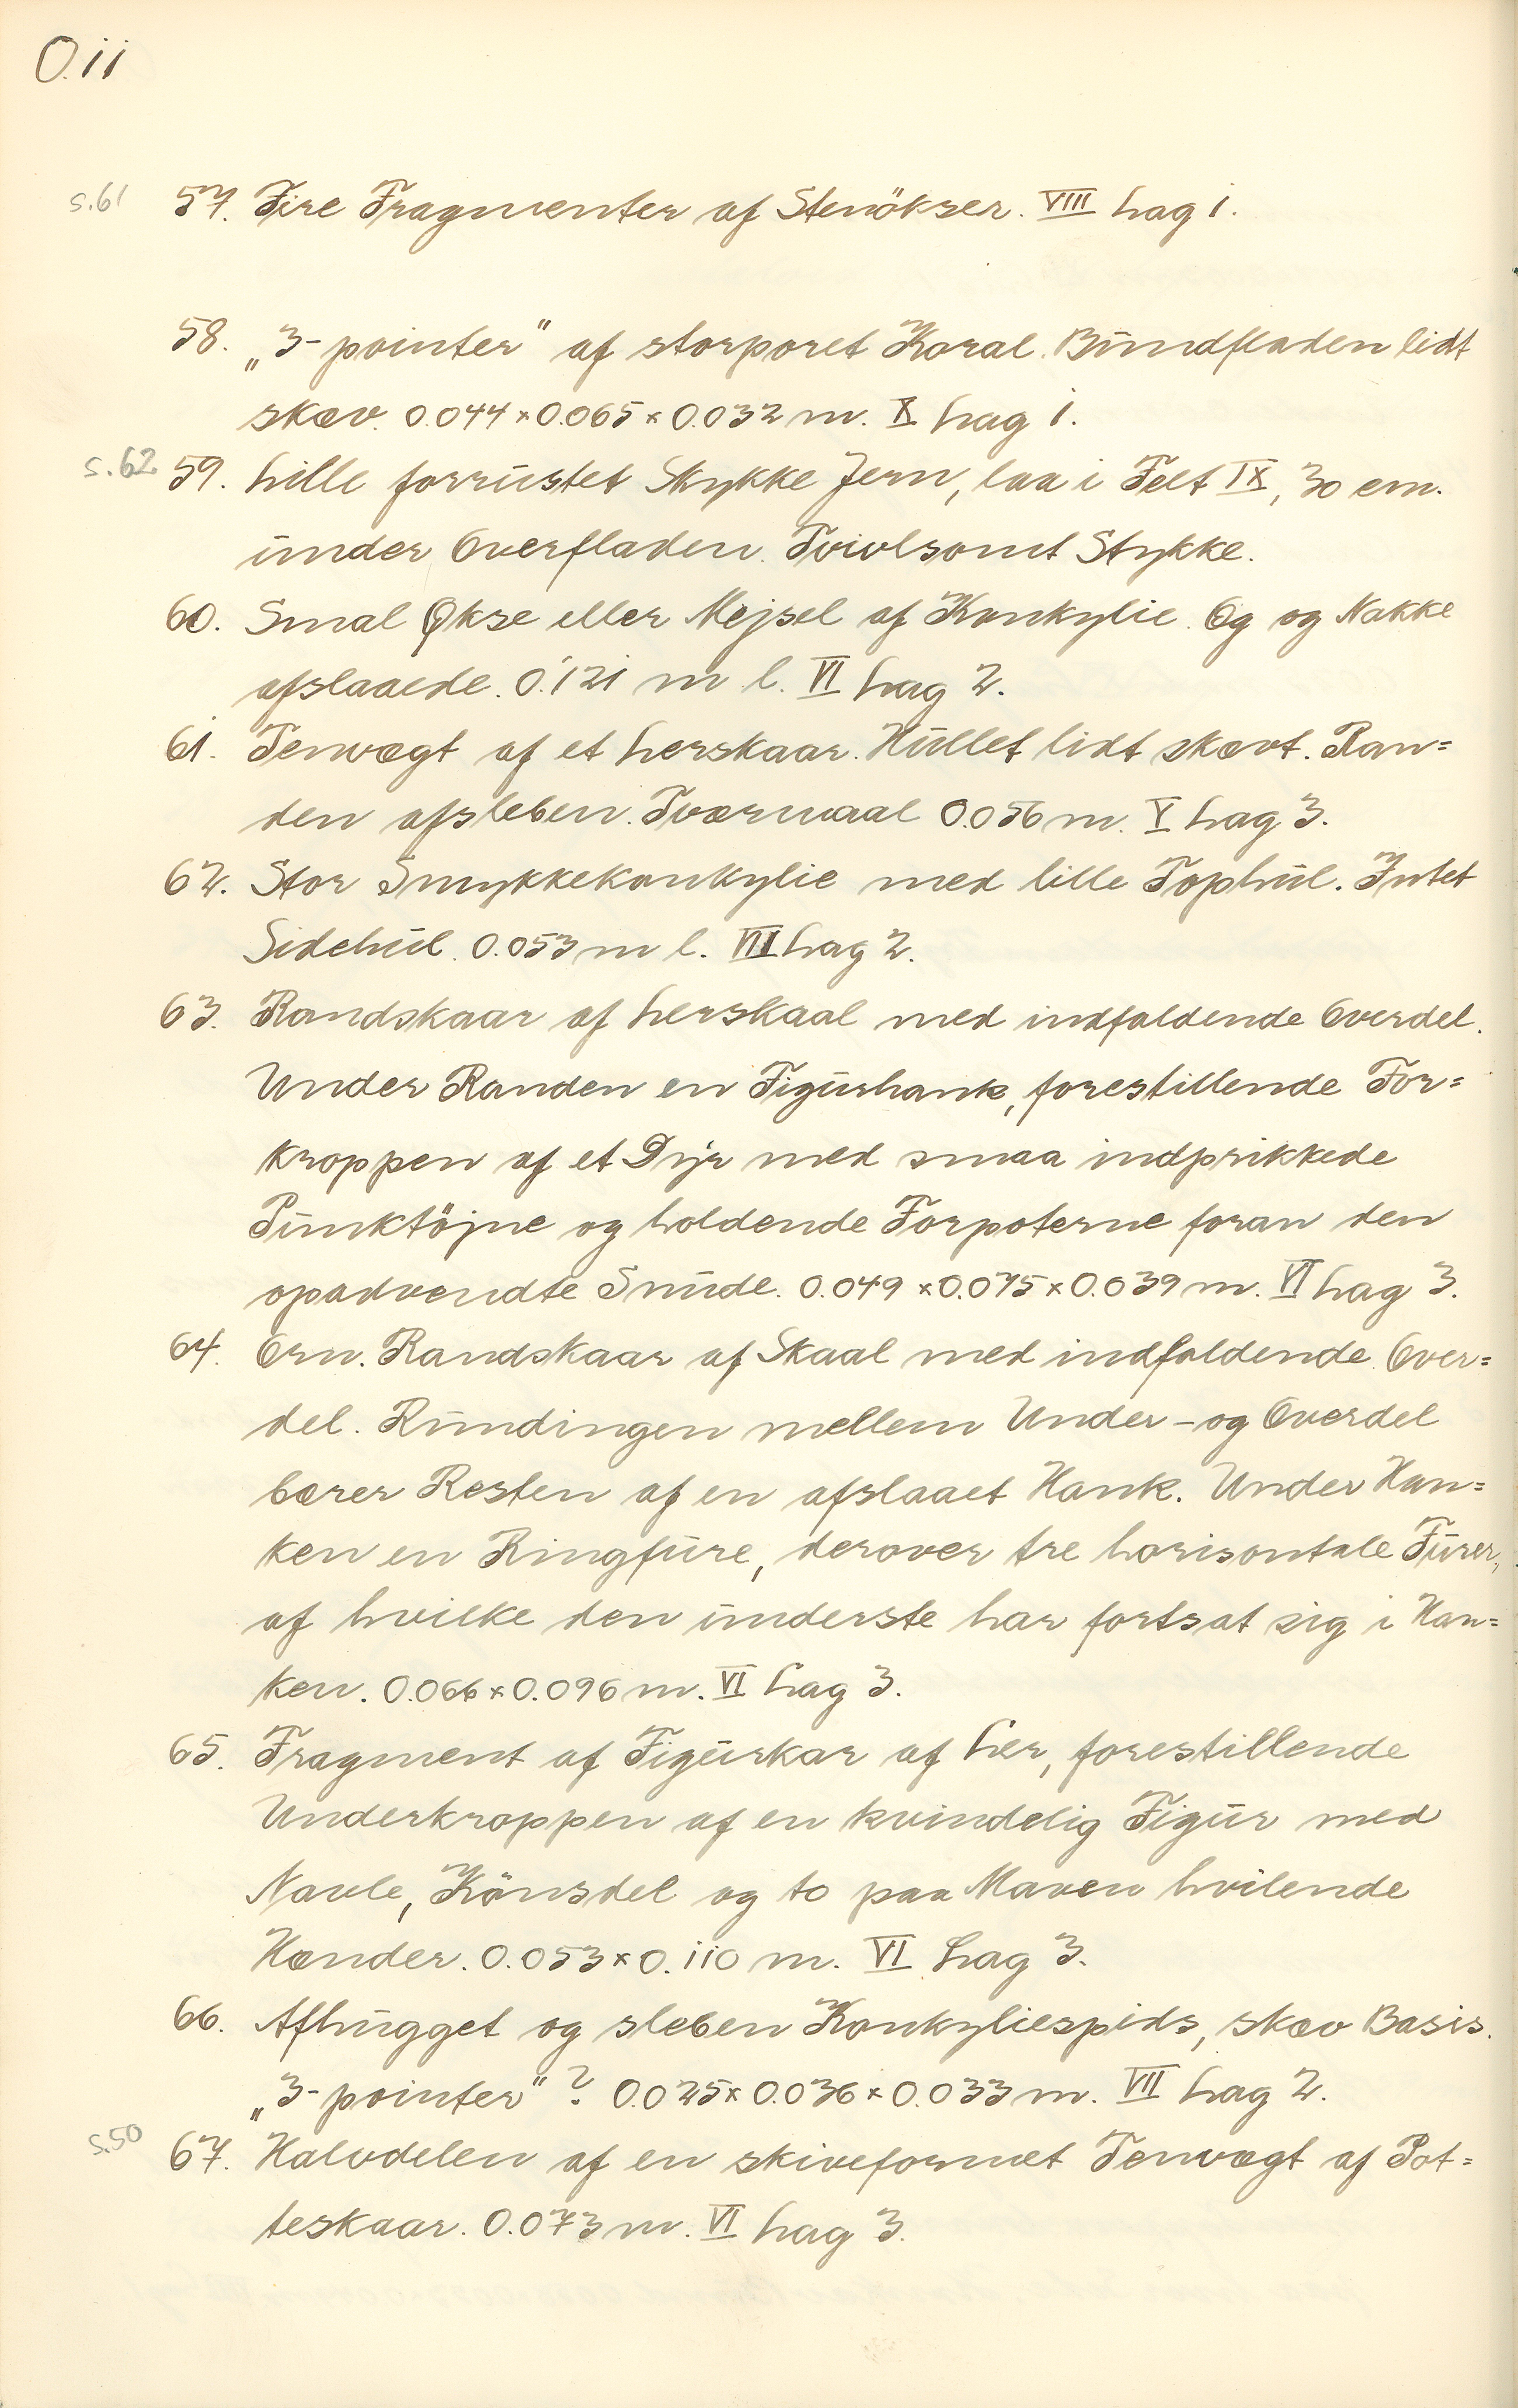 O.11
s.61 57. Fire Fragmenter af Stenökser. VIII Lag 1.
58. „3-pointer" af storporet Koral. Bundfladen lidt
skæv. 0.044 × 0.065 × 0.032 m. X Lag 1.
s.62 59. Lille forrustet Stykke Jern, laa i Felt IX, 30 cm.
under Overfladen. Tvivlsomt Stykke.
60. Smal Økse eller Mejsel af Konkylie. Eg og Nakke
afslaaede. 0.121 m l. VI Lag 2.
61. Tenvægt af et Lerskaar. Hullet lidt skævt. Ran=
den afsleben. Tværmaal 0.056 m. V Lag 3.
62. Stor Smykkekonkylie med lille Tophul. Intet
Sidehul. 0.053 m l. VII Lag 2.
63. Randskaar af Lerskaal med indfaldende Overdel.
Under Randen en Figurhank, forestillende For=
kroppen af et Dyr med smaa indprikkede
Punktöjne og holdende Forpoterne foran den
opadvendte Snude. 0.049 × 0.075 × 0.039 m. VI Lag 3.
64. Orn. Randskaar af Skaal med indfaldende Over=
del. Rundingen mellem Under- og Overdel
bærer Resten af en afslaaet Hank. Under Han=
ken en Ringfure, derover tre horisontale Furer,
af hvilke den underste har fortsat sig i Han=
ken. 0.066 × 0.096 m. VI Lag 3.
65. Fragment af Figurkar af Ler, forestillende
Underkroppen af en kvindelig Figur med
Navle, Könsdel og to paa Maven hvilende
Hænder. 0.053 × 0.110 m. VI Lag 3.
66. Afhugget og sleben Konkyliespids, skæv Basis.
„3-pointer" ? 0.025 × 0.036 × 0.033 m. VII Lag 2.
s.50 67. Halvdelen af en skiveformet Tenvægt af Pot=
teskaar. 0.073 m. VI Lag 3.